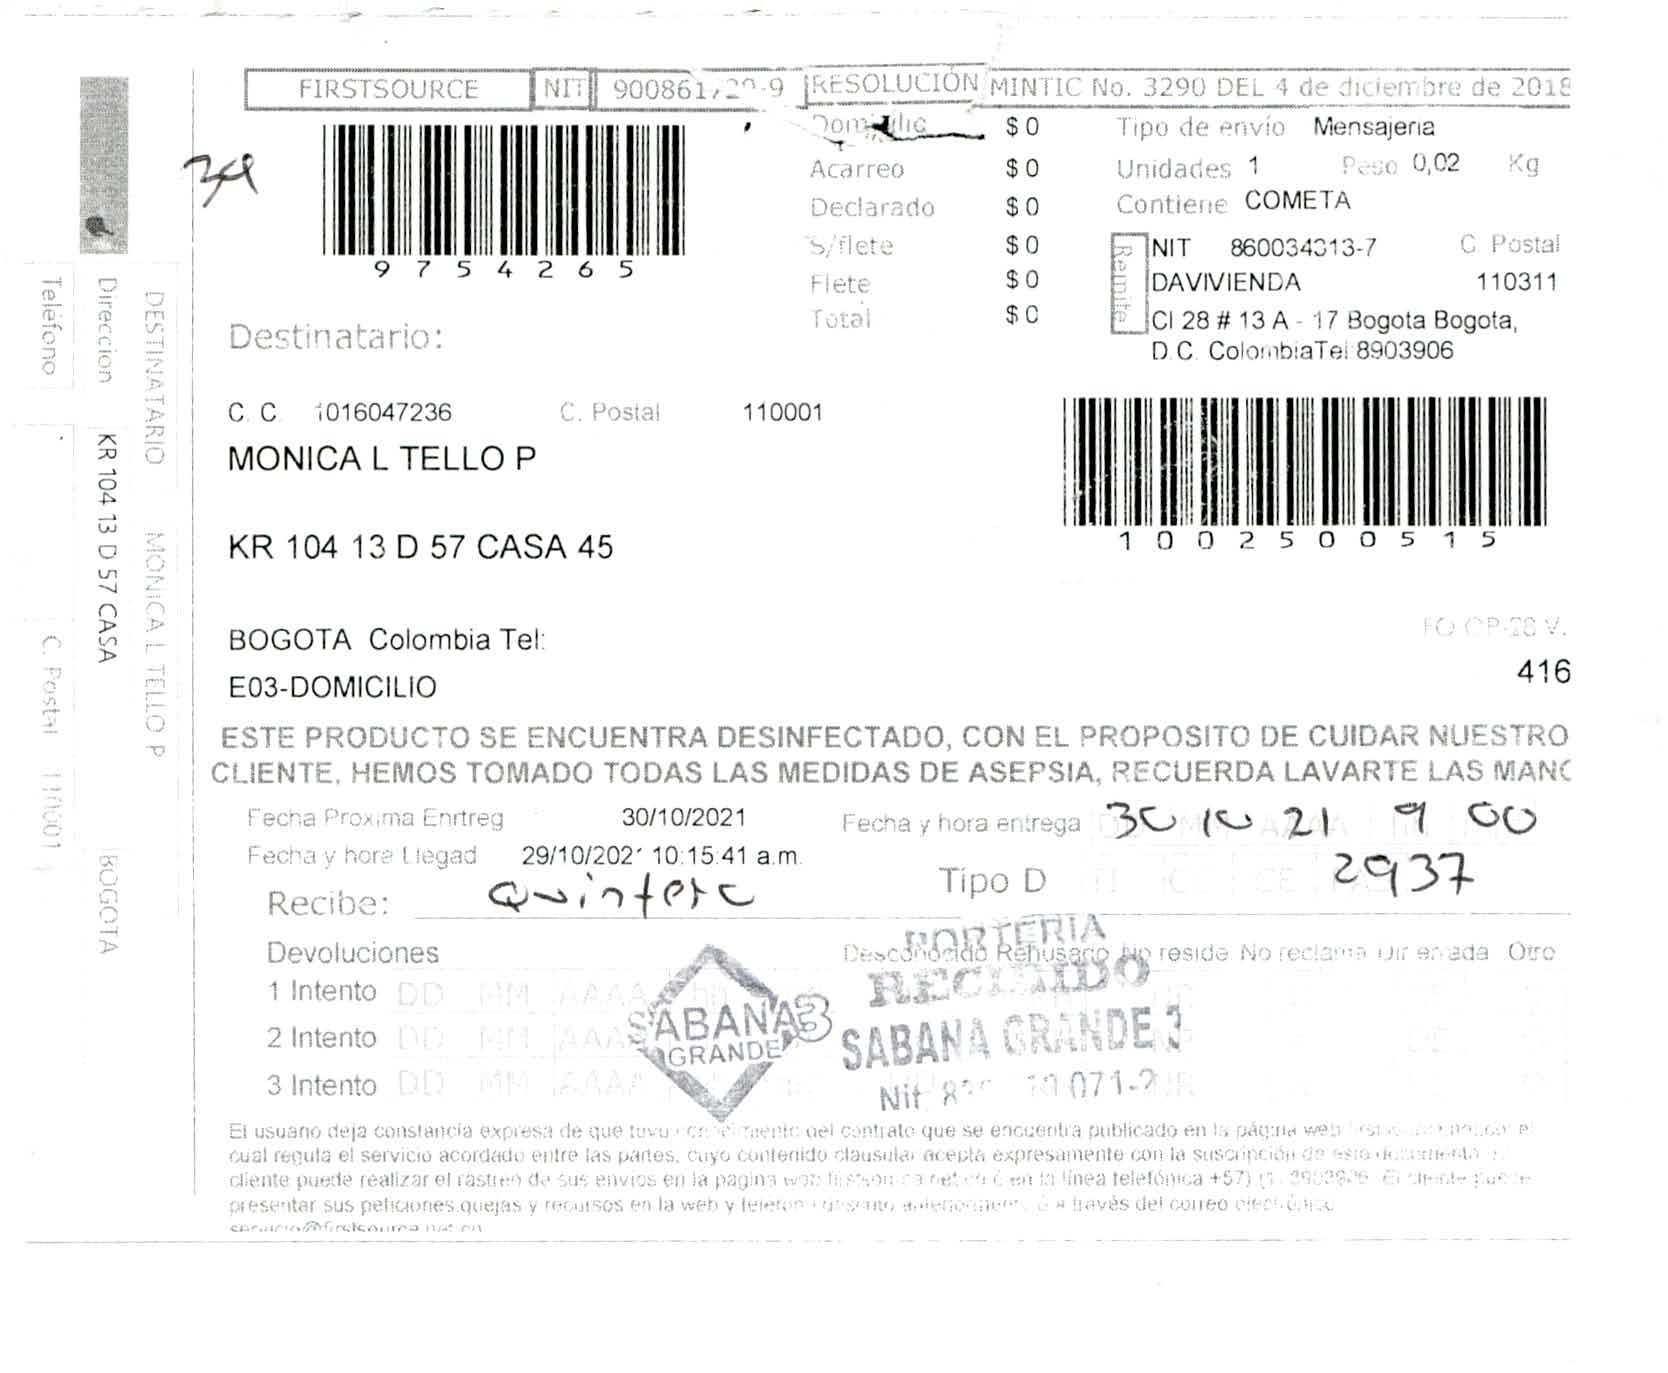 FIRSTSOURCE NIT RESOLUCIÓN MINTIC No. 3290 DEL 4 de diciembre de 2018
9754265
Domicilio $ 0
Acarreo $ 0
Declarado $ 0
S/flete $ 0
Flete $ 0
Total $ 0
Tipo de envío Mensajeria
Unidades 1 Peso 0,02 Kg
Contiene COMETA
Remite
NIT 860034313-7 C. Postal
DAVIVIENDA 110311
Cl 28 # 13 A - 17 Bogota Bogota,
D.C. ColombiaTel 8903906
1002500515
Destinatario:
C. C. 1016047236 C. Postal 110001
MONICA L TELLO P
KR 104 13 D 57 CASA 45
BOGOTA Colombia Tel:
E03-DOMICILIO
FO-OP-28 V.
416
ESTE PRODUCTO SE ENCUENTRA DESINFECTADO, CON EL PROPOSITO DE CUIDAR NUESTRO
CLIENTE, HEMOS TOMADO TODAS LAS MEDIDAS DE ASEPSIA, RECUERDA LAVARTE LAS MANO
Fecha Proxima Enrtreg 30/10/2021
Fecha y hora entrega 30 10 21 9 00
Fecha y hora Llegad 29/10/2021 10:15:41 a.m.
Recibe: Quintero
Tipo D 2937
Devoluciones
Desconocido Rehusado No reside No reclama Dir errada Otro
1 Intento DD MM AAAA
2 Intento DD MM AAAA
3 Intento DD MM AAAA
SABANA 3
GRANDE
PORTERIA
RECIBIDO
SABANA GRANDE 3
Nit
El usuario deja constancia expresa de que tuvo conocimiento del contrato que se encuentra publicado en la página web
cual regula el servicio acordado entre las partes, cuyo contenido clausular acepta expresamente con la suscripción de este documento
cliente puede realizar el rastreo de sus envios en la pagina web en la línea telefónica El cliente puede
presentar sus peticiones quejas y recursos en la web y a través del correo electrónico
servicio@firstsource.net.co
DESTINATARIO MONICA L TELLO P
Direccion KR 104 13 D 57 CASA BOGOTA
Teléfono C. Postal 110001